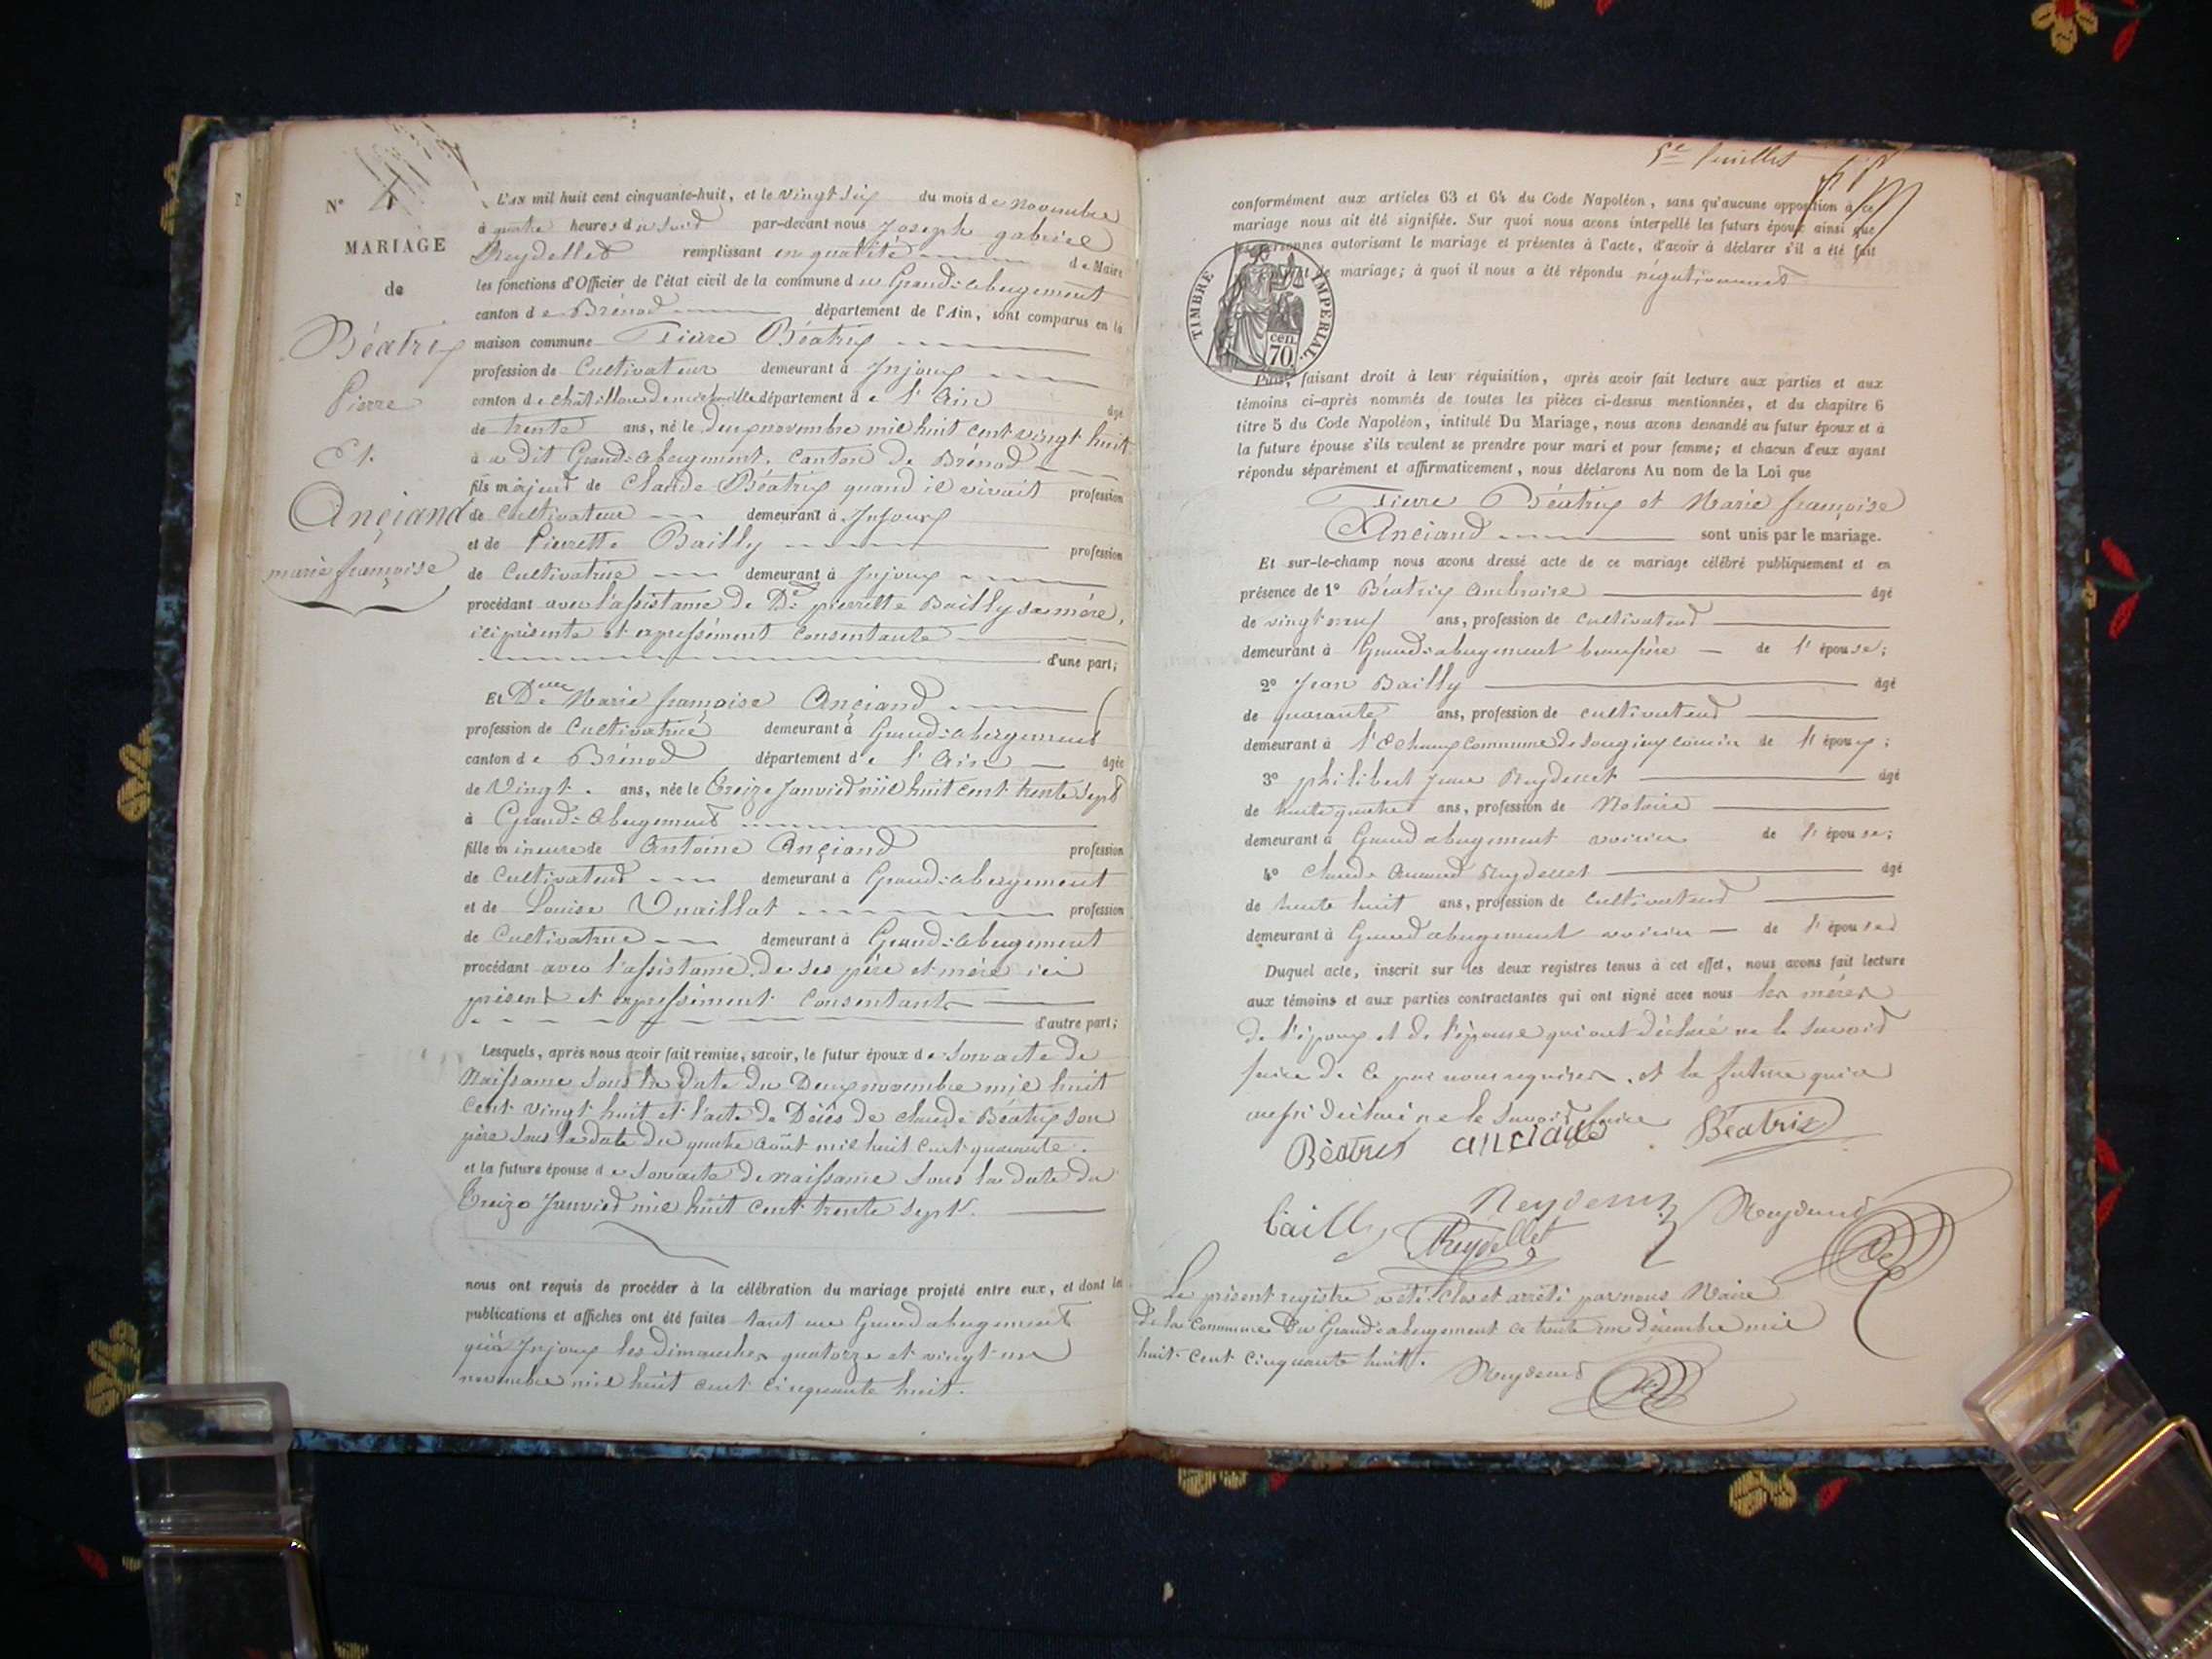 N° 4
MARIAGE
de
Béatrix
Pierre
Et
Ançiand
marie françoise
L'AN mil huit cent cinquante-huit, et le vingt six du mois de novembre
à quatre heures du soir par-devant nous Joseph gabriel
Reydellet remplissant en qualité de Maire
les fonctions d'Officier de l'état civil de la commune du Grand-abergement
canton de Brénod département de l'Ain, sont comparus en la
maison commune Pierre Béatrix
profession de Cultivateur demeurant à Injoux
canton de châtillon de michaille département de l'Ain âgé
de trente ans, né le Deux novembre mil huit cent vingt huit
à a dit Grand-abergement, Canton de Brénod
fils majeur de Claude Béatrix quand il vivait profession
de Cultivateur demeurant à Injoux
et de Pierrette Bailly profession
de Cultivatrice demeurant à Injoux
procédant avec l'assistance de De pierrette Bailly sa mère,
ici présente et expressément Consentante
d'une part;
Et Delle Marie françoise Ançiand
profession de Cultivatrice demeurant à Grand-abergement
canton de Brénod département de l'Ain âgée
de Vingt ans, née le Treize Janvier mil huit cent trente sept
à Grand-abergement
fille mineure de Antoine Ançiand profession
de Cultivateur demeurant à Grand-abergement
et de Louise Vuaillat profession
de Cultivatrice demeurant à Grand-abergement
procédant avec l'assistance de ses père et mère ici
présent et expressément Consentants
d'autre part;
Lesquels, après nous avoir fait remise, savoir, le futur époux de Son acte de
Naissance Sous la date du Deux novembre mil huit
Cent vingt huit et l'acte de Décès de claude Béatrix son
père Sous la date du quatre août mil huit cent quarante.
et la future épouse de Son acte de naissance Sous la date du
Treize Janvier mil huit Cent trente Sept.
nous ont requis de procéder à la célébration du mariage projeté entre eux, et dont les
publications et affiches ont été faites tant au Grand abergement
qu'à Injoux les dimanches quatorze et vingt un
novembre mil huit cent cinquante huit.
5e feuillet
conformément aux articles 63 et 64 du Code Napoléon, sans qu'aucune opposition à ce
mariage nous ait été signifiée. Sur quoi nous avons interpellé les futurs époux ainsi que
les personnes autorisant le mariage et présentes à l'acte, d'avoir à déclarer s'il a été fait
contrat de mariage; à quoi il nous a été répondu négativement
TIMBRE IMPÉRIAL.
cen.
70
Puis, faisant droit à leur réquisition, après avoir fait lecture aux parties et aux
témoins ci-après nommés de toutes les pièces ci-dessus mentionnées, et du chapitre 6
titre 5 du Code Napoléon, intitulé Du Mariage, nous avons demandé au futur époux et à
la future épouse s'ils veulent se prendre pour mari et pour femme; et chacun d'eux ayant
répondu séparément et affirmativement, nous déclarons Au nom de la Loi que
Pierre Béatrix et Marie françoise
Anciand sont unis par le mariage.
Et sur-le-champ nous avons dressé acte de ce mariage célébré publiquement et en
présence de 1° Béatrix Ambroise âgé
de vingt neuf ans, profession de cultivateur
demeurant à Grand-abergement beaufrère de l'épouse;
2° Jean Bailly âgé
de quarante ans, profession de cultivateur
demeurant à Commune de Songieu cousin de l'époux;
3° philibert Reydellet âgé
de trente quatre ans, profession de Notaire
demeurant à Grand abergement voisin de l'épouse;
4° Claude Reydellet âgé
de trente huit ans, profession de Cultivateur
demeurant à Grand abergement voisin de l'épouse
Duquel acte, inscrit sur les deux registres tenus à cet effet, nous avons fait lecture
aux témoins et aux parties contractantes qui ont signé avec nous les mères
de l'époux et de l'épouse qui ont déclaré ne le Savoir
faire de ce par nous requises, et la future qui a
aussi déclaré ne le Savoir faire
Béatrix anciand Béatrix
Bailly Reydellet Reydellet
Reydellet
Le présent registre a été clos et arrêté par nous Maire
De la Commune du Grand-abergement ce trente un décembre mil
huit-cent cinquante huit.
Reydellet